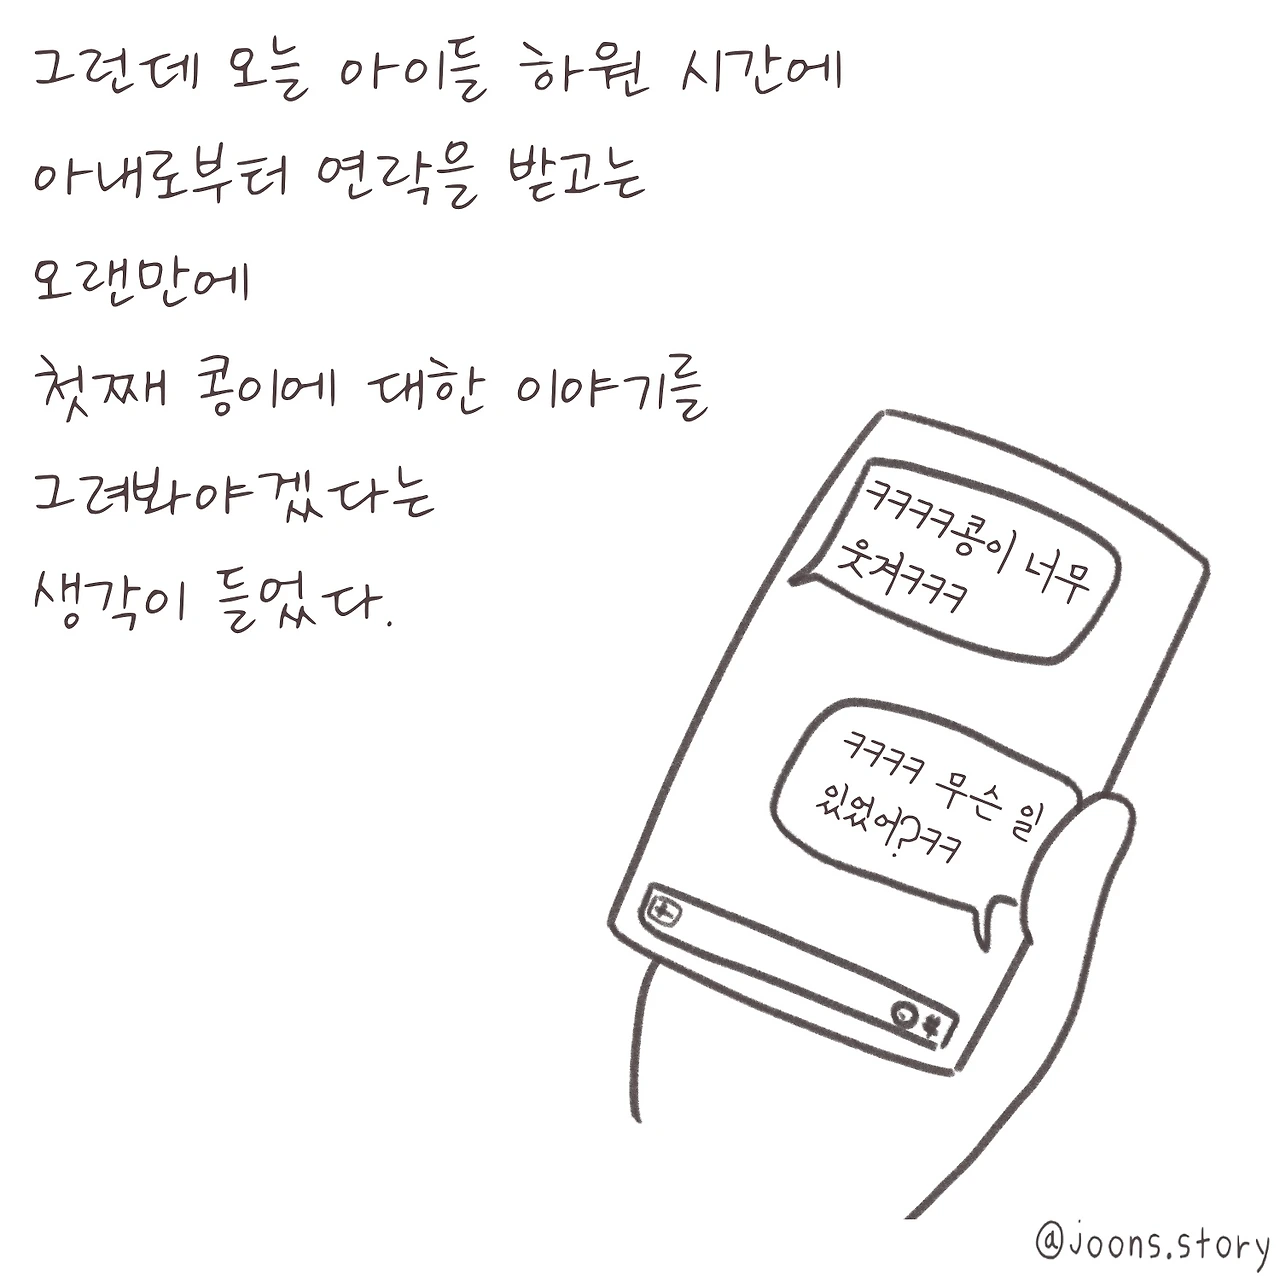 그런데 오늘 아이들 하원 시간에
아내로부터 연락을 받고는
오랜만에
첫째 콩이에 대한 이야기를
그려봐야겠다는
생각이 들었다.
ㅋㅋㅋㅋ콩이 너무
웃겨ㅋㅋㅋ
ㅋㅋㅋㅋ 무슨 일
있었어?ㅋㅋ
@joons.story